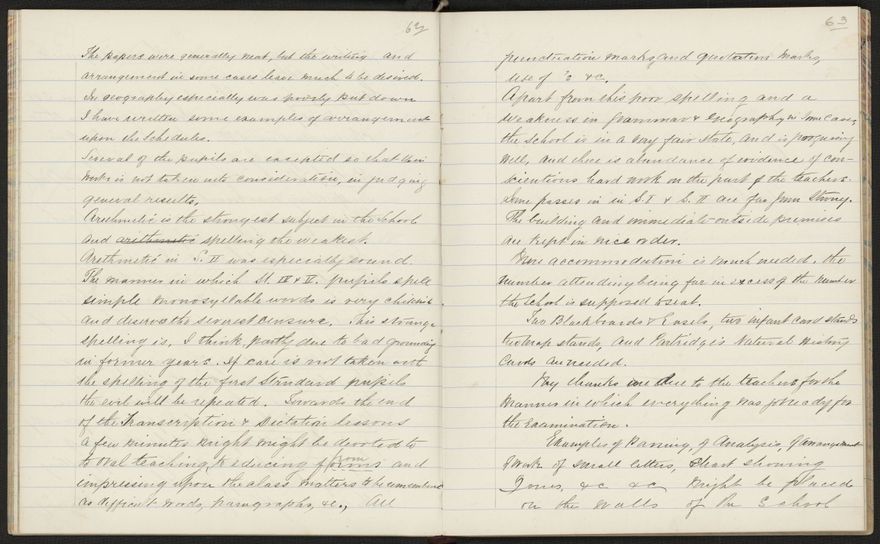 62
The papers were generally neat, but the writing and
arrangement in some cases leave much to be desired.
In geography especially was poorly put down
I have written some examples of arrangement
upon the Schedules.
Several of the pupils are excepted so that their
work is not taken into consideration, in judging
general results.
Arithmetic is the strongest subject in the School
and arithmetic spelling the weakest.
Arithmetic in S. II was especially sound.
The manner in which pupils spell
simple monosyllable words is very childish
and deserves the severest censure. This strange
spelling is, I think, partly due to bad grounding
in former years. If care is not taken with
the spelling of the first Standard pupils
the evil will be repeated. Towards the end
of the Transcription & Dictation lessons
a few minutes might might be devoted to
to oral teaching, & educing from forms and
impressing upon the class matters to be remembered
as difficult words, paragraphs, &c., All
63
punctuation marks, and quotation marks,
use of &c.
Apart from this poor spelling and a
weakness in Grammar & Geography in some cases,
the School is in a very fair state, and is progressing
well, and there is abundance of evidence of con-
scientious hard work on the part of the teachers.
Some passes in in S. I & S. II are far from strong.
The building and immediate outside premises
are kept in nice order.
More accommodation is much needed, the
number attending being far in excess of the number
the School is supposed to seat.
Two Blackboards & Easels, two infant card stands
two map stands, and Partridge's Natural History
Cards are needed.
My thanks are due to the teachers for the
manner in which everything was got ready for
the Examination.
Examples of Parsing, of Analysis, of arrangement
of work of small letters, Chart showing
Zones, &c &c might be placed
on the walls of the School